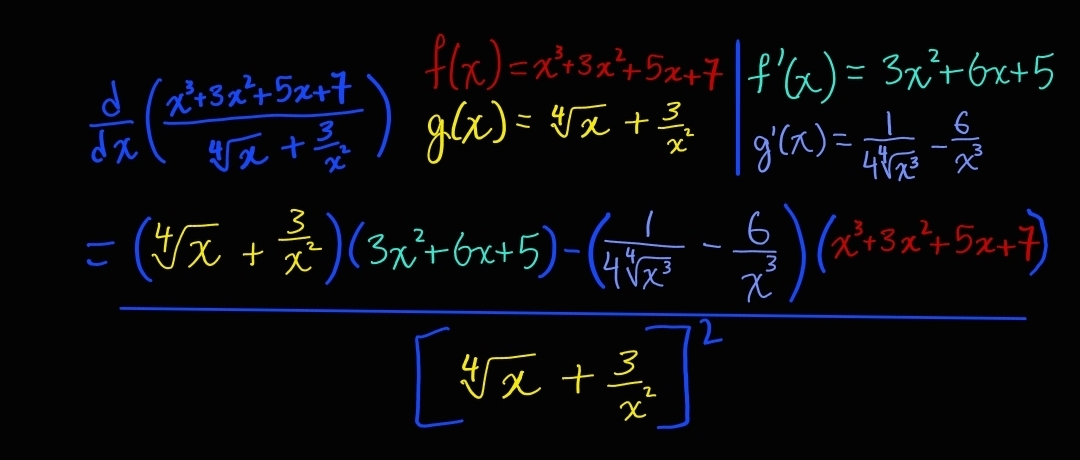 d/dx ( (x³+3x²+5x+7) / (∜x + 3/x²) )
f(x) = x³+3x²+5x+7
g(x) = ∜x + 3/x²
f'(x) = 3x²+6x+5
g'(x) = 1/(4∜x³) − 6/x³
= (∜x + 3/x²)(3x²+6x+5) − (1/(4∜x³) − 6/x³)(x³+3x²+5x+7)
[∜x + 3/x²]²